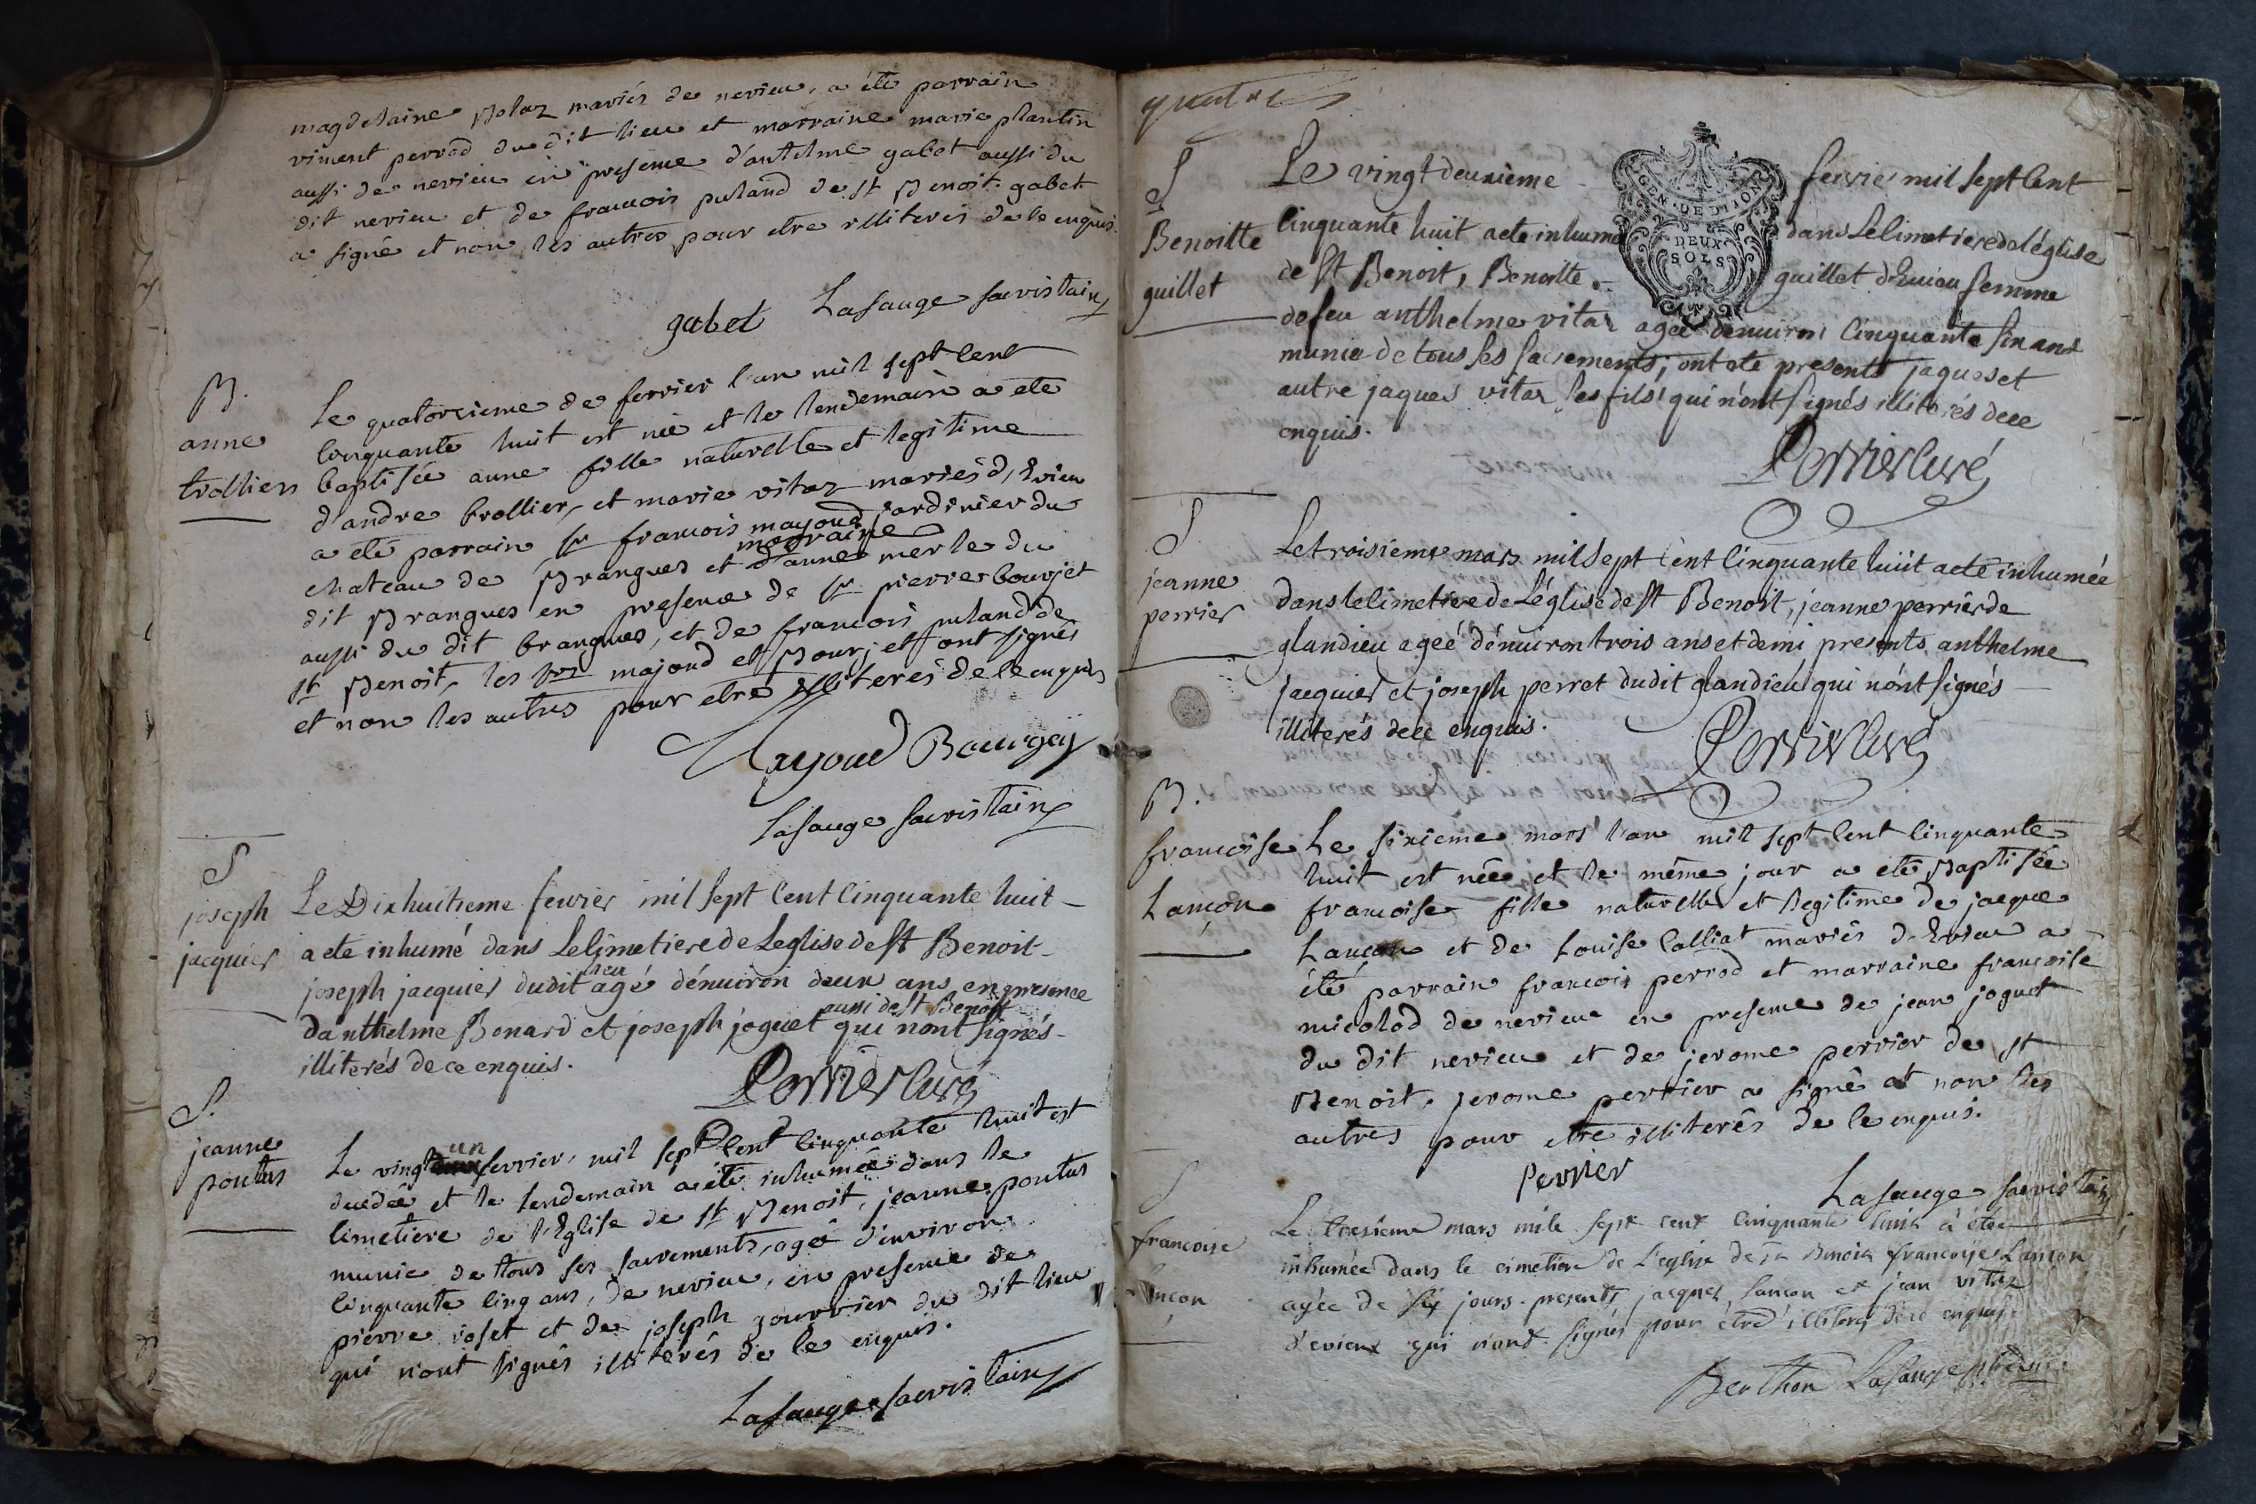 magdelaine Bolaz mariés de nerieu, a été parrain
viment perrod du dit lieu et marraine marie plantin
aussi de nerieu en presence d'antelme gabet aussi du
dit nerieu et de francois puland de st Benoit. gabet
a signé et non les autres pour etre illiterés de ce enquis.
gabet Lasauge sacristain
B.
anne
trolliers
Le quatorcieme de fevrier l'an mil sept cent
cinquante huit est née et le lendemain a eté
baptisée anne fille naturelle et legitime
d'andre trollier, et marie vitoz mariés d'Evieu
a eté parrain sr francois mayoud jardinier du
marraine
chateau de Brangues et d'anne merle du
dit Brangues en presence de sr pierre bourjet
aussi du dit brangues, et de francois puland de
st Benoit, les srs majoud et Bourjet ont signés
et non les autres pour etre illiterés de ce enquis
Mayoud Bourgey
Lasauge sacristain
S
joseph
jacquier
Le Dixhuitieme fevrier mil sept cent cinquante huit
a ete inhumé dans Le cimetiere de Leglise de st Benoit
joseph jacquier dudit lieu agé dénuiron deux ans en presence
aussi de st Benoit
danthelme Bonard et joseph joguet qui nont signés
illiterés de ce enquis.
Perrier curé
S.
jeanne
pontus
Le vingt un fevrier, mil sept cent cinquante huit est
decedée et le lendemain a été inhumée dans le
cimetiere de l'Eglise de st Benoit, jeanne pontus
munie de tous ses sacrements, agée d'environ
cinquante cinq ans, de nerieu, en presence de
pierre roset et de joseph gourrier du dit lieu
qui n'ont signés illiterés de ce enquis.
Lasauge sacristain
quatre
GEN. DE DIJON
DEUX
SOLS
S
Benoitte
guillet
Le vingt deuxieme fevrier mil sept cent
cinquante huit a ete inhumé dans Le cimetiere de l'église
de st Benoit, Benoitte guillet d'Euieu femme
de feu anthelme vitoz agée denuiron cinquante six ans
munie de tous ses sacrements; ont ete presents jaques et
autre jaques vitoz ses fils qui n'ont signés illiterés de ce
enquis.
Perrier curé
S.
jeanne
perrier
Le troisieme mars mil sept cent cinquante huit a eté inhumée
dans le cimetiere de L'église de st Benoit, jeanne perrier de
glandieu agée dénuiron trois ans et demi presents anthelme
jacquier et joseph perret dudit glandieu qui n'ont signés
illiterés de ce enquis.
Perrier curé
B.
francoise
Lançon
Le sixieme mars l'an mil sept cent cinquante
huit est née et le même jour a eté Baptisée
francoise fille naturelle et legitime de jacque
Lançon et de Louise Calliat mariés d'Evieu a
été parrain francois perrod et marraine francoise
micolod de nerieu en presence de jean joguet
du dit nerieu et de jerome perrier de st
Benoit. jerome perrier a signé et non les
autres pour etre illiterés de ce enquis.
Perrier
Lasauge sacristain
S
francoise
Lançon
Le tresieme mars mile sept cent cinquante huit a été
inhumée dans le cimetiere de L'eglise de st Benoit francoise Lançon
agée de six jours. presents jacques Lançon et jean vitoz
d'evieux qui n'ont signés pour etre illiteres de ce enquis.
Berthon Lasauge